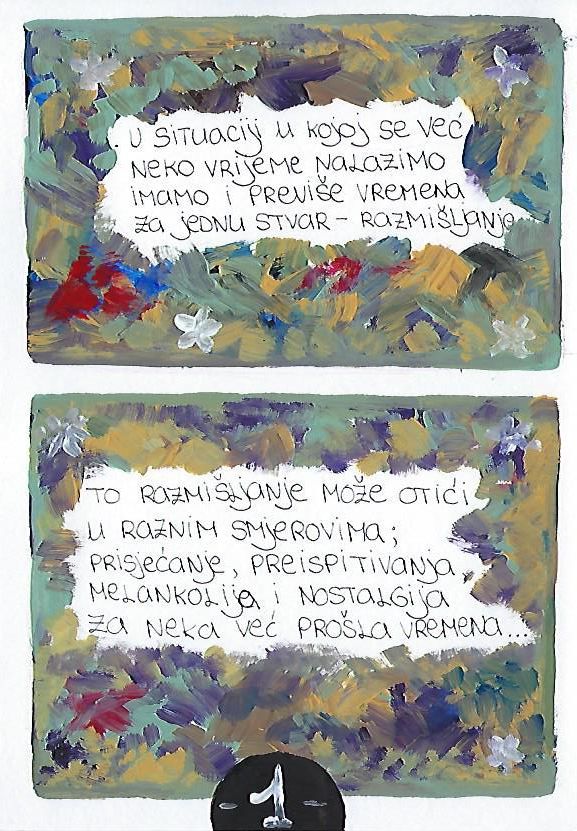 U SITUACIJI U KOJOJ SE VEĆ
NEKO VRIJEME NALAZIMO
IMAMO I PREVIŠE VREMENA
ZA JEDNU STVAR - RAZMIŠLJANJE
TO RAZMIŠLJANJE MOŽE OTIĆI
U RAZNIM SMJEROVIMA;
PRISJEĆANJE, PREISPITIVANJA,
MELANKOLIJA I NOSTALGIJA
ZA NEKA VEĆ PROŠLA VREMENA...
- 1 -